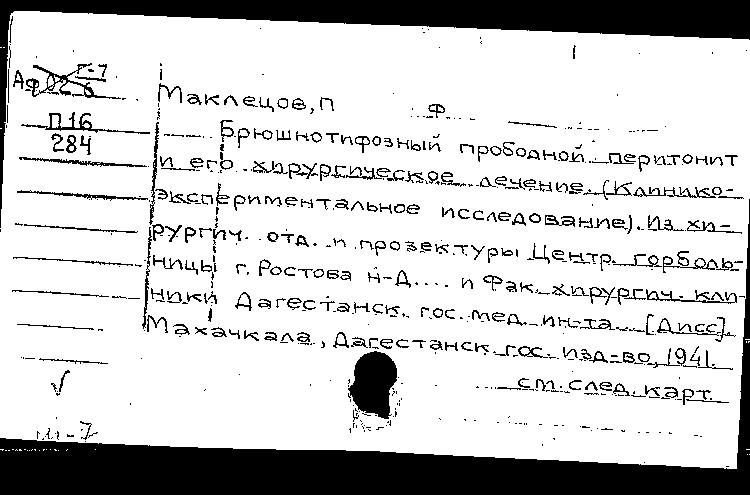 Г-7
Аф 02 6
П16
284
Маклецов, П Ф
Брюшнотифозный прободной перитонит
и его хирургическое лечение. (Клинико-
экспериментальное исследование). Из хи-
рургич. отд. и прозектуры Центр. горболь-
ницы г. Ростова н-Д.... и Фак. хирургич. кли-
ники Дагестанск. гос. мед. ин-та. [Дисс].
Махачкала, Дагестанск. гос. изд-во, 1941.
см. след. карт.
√